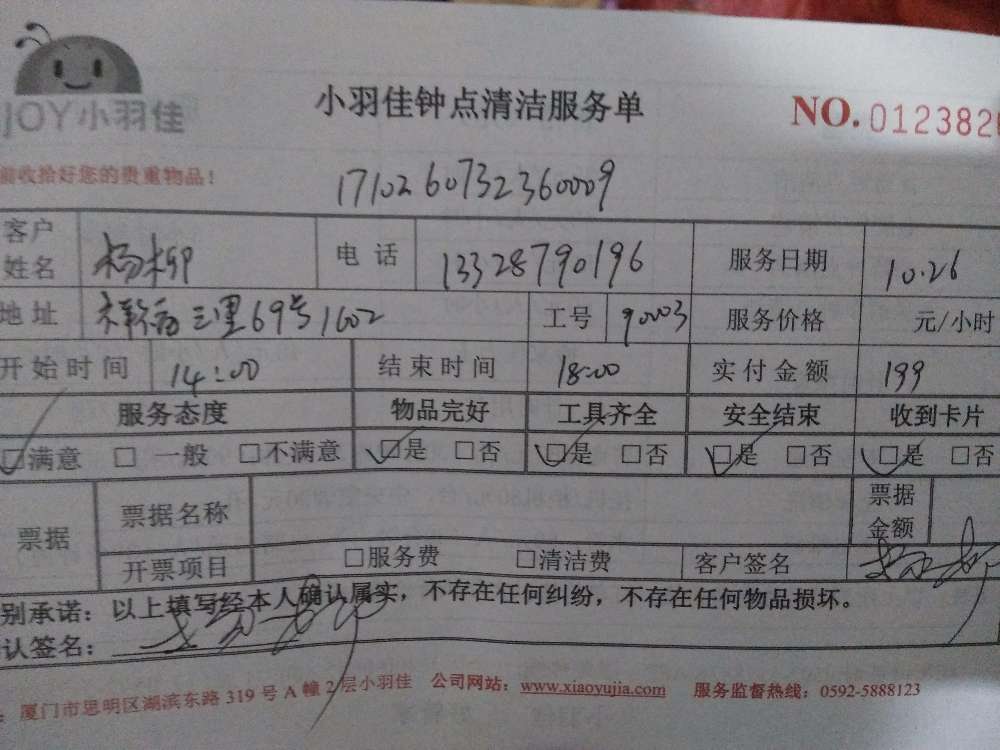 JOY小羽佳
小羽佳钟点清洁服务单
NO. 0123820
前收拾好您的贵重物品！
1710260732360009
客户姓名 杨柳 电话 13328790196 服务日期 10.26
地址 祥福三里69号1602 工号 90003 服务价格 元/小时
开始时间 14:00 结束时间 18:00 实付金额 199
服务态度 物品完好 工具齐全 安全结束 收到卡片
□满意 □一般 □不满意 □是 □否 □是 □否 □是 □否 □是 □否
票据 票据名称 票据金额
开票项目 □服务费 □清洁费 客户签名
别承诺：以上填写经本人确认属实，不存在任何纠纷，不存在任何物品损坏。
认签名：
：厦门市思明区湖滨东路319号A幢2层小羽佳 公司网站：www.xiaoyujia.com 服务监督热线：0592-5888123